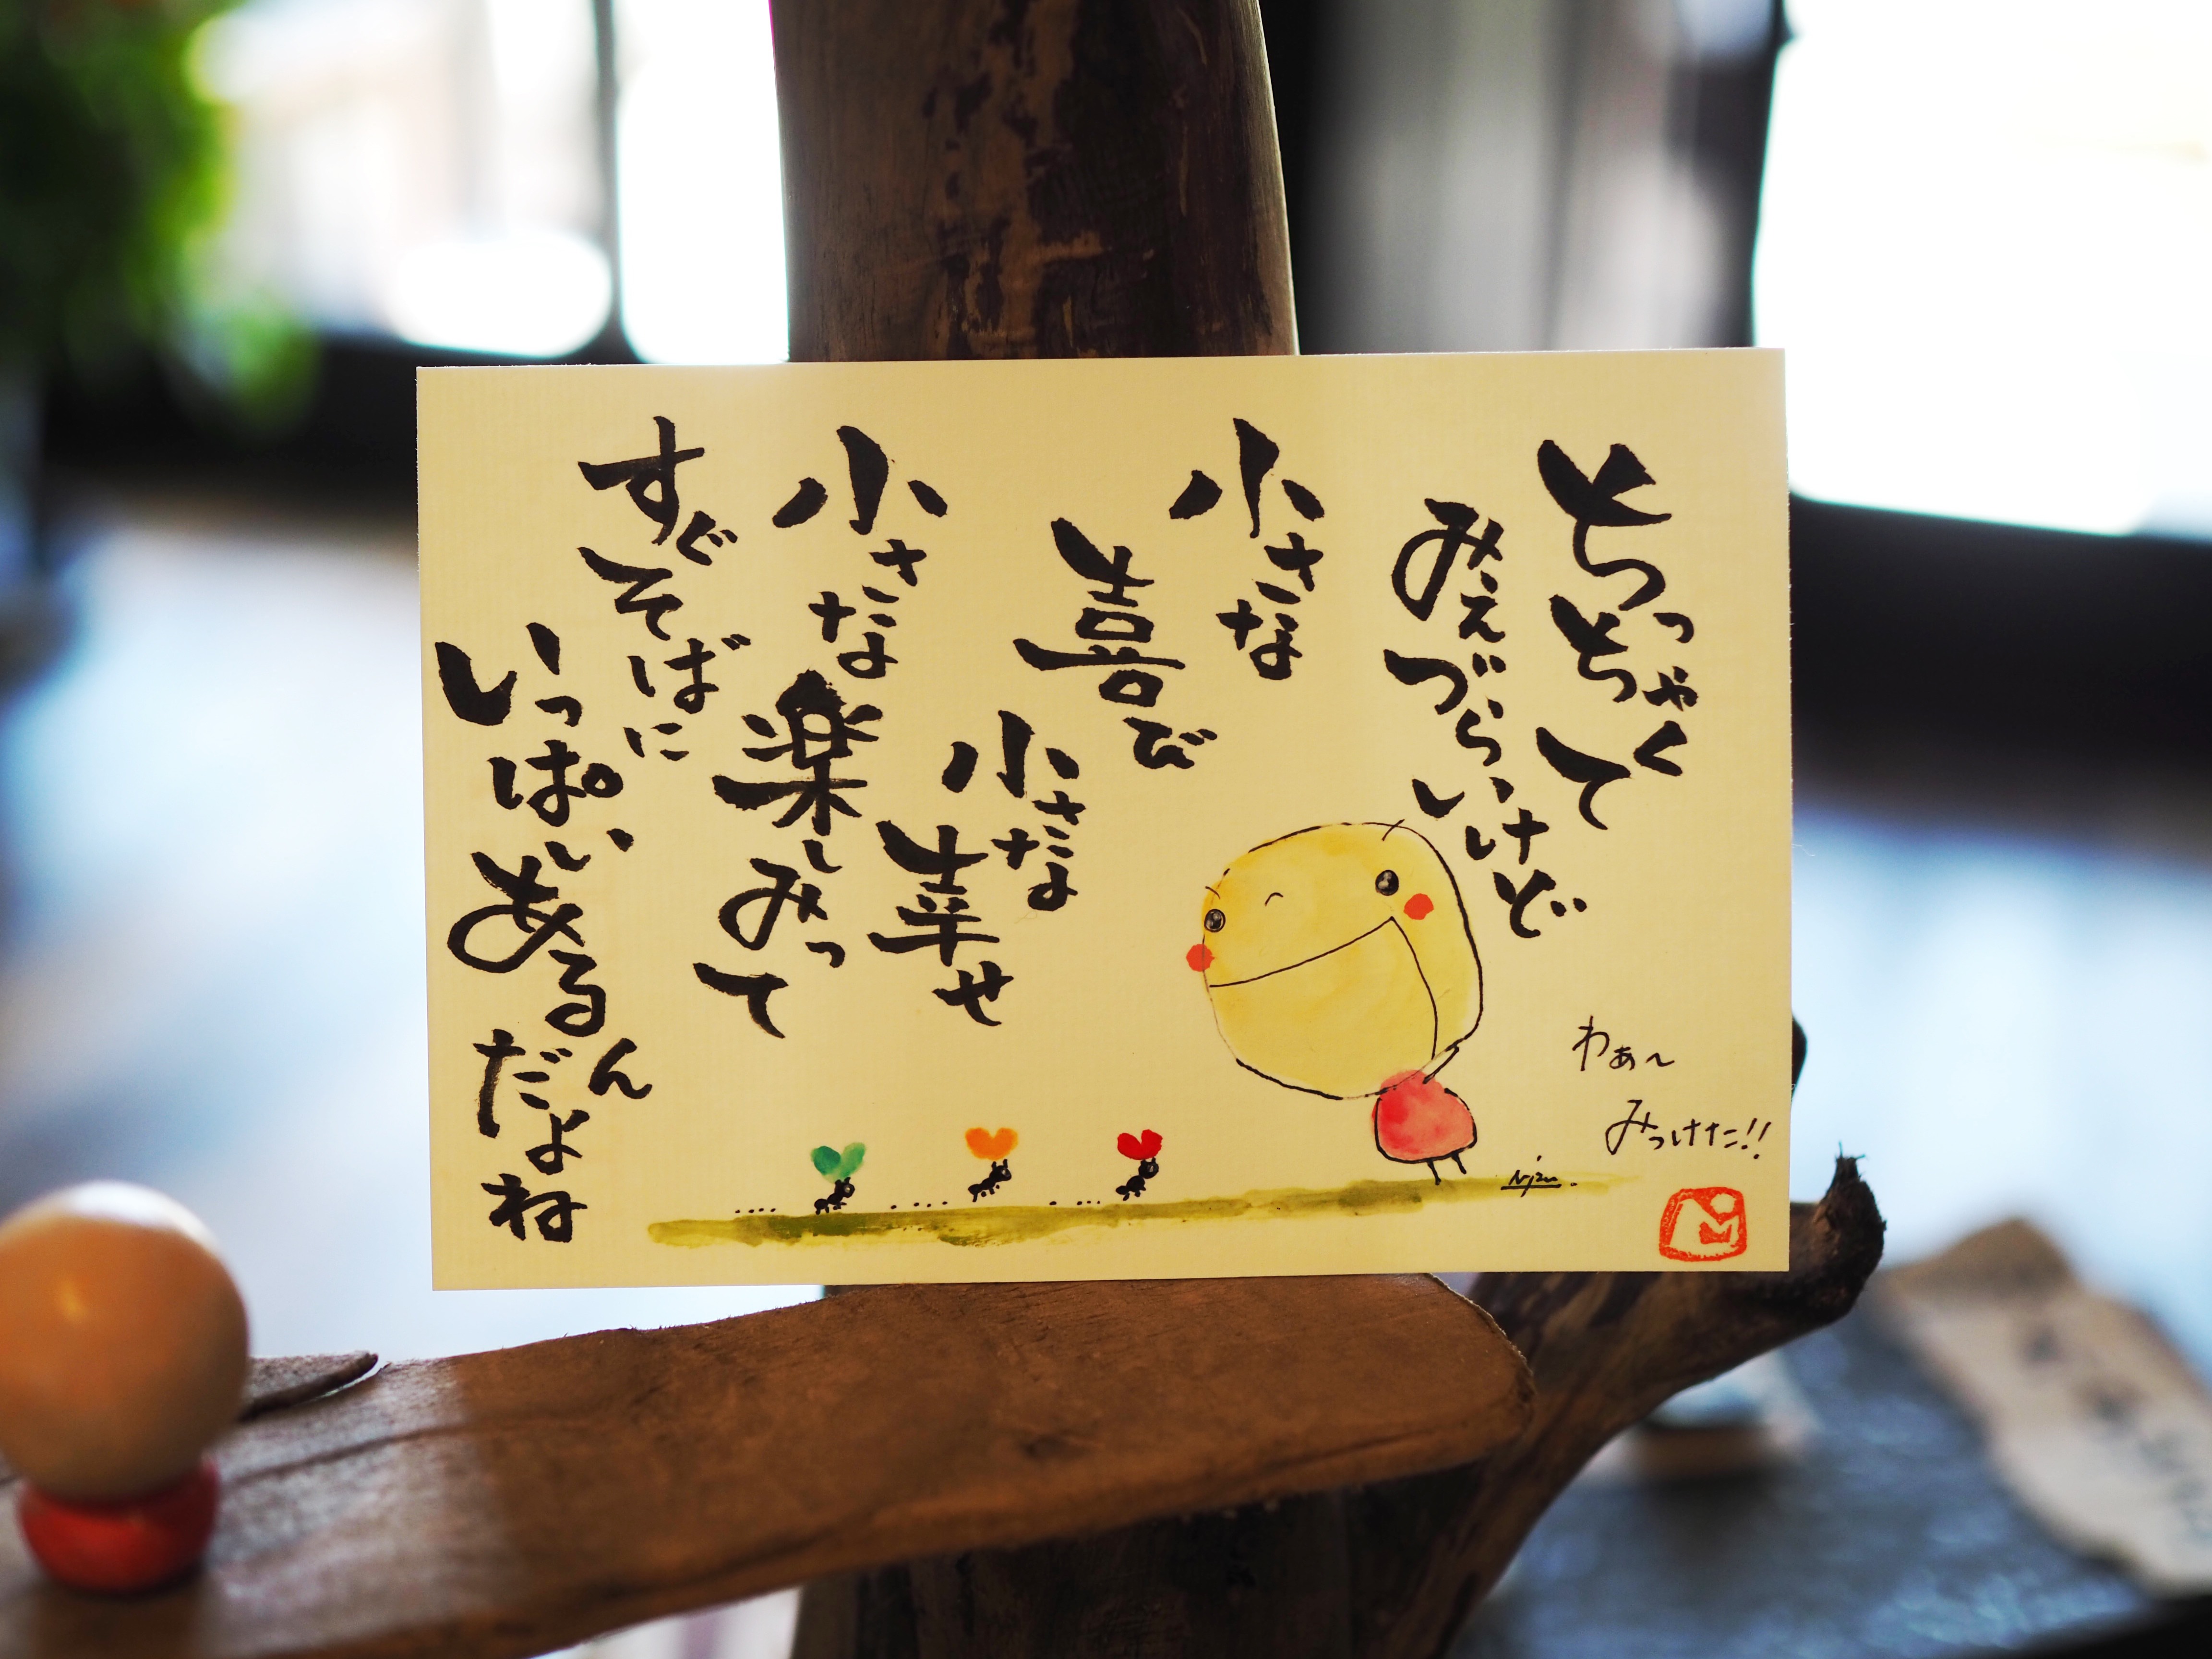 ちっちゃくて
みえづらいけど
小さな
喜び
小さな
幸せ
小さな楽しみって
すぐそばに
いっぱいあるんだよね
わぁ〜
みつけた!!